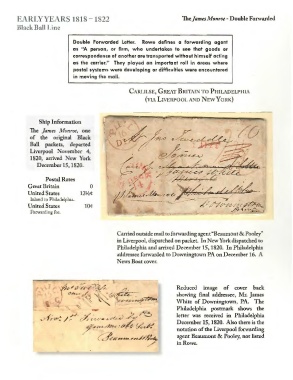 EARLY YEARS 1818 – 1822
Black Ball Line
The James Monroe - Double Forwarded
Double Forwarded Letter. Rowe defines a forwarding agent
as "A person, or firm, who undertakes to see that goods or
correspondence of another are transported without himself acting
as the carrier." They played an important roll in areas where
postal systems were developing or difficulties were encountered
in moving the mail.
CARLISLE, GREAT BRITAIN TO PHILADELPHIA
(VIA LIVERPOOL AND NEW YORK)
Ship Information
The James Monroe, one
of the original Black
Ball packets, departed
Liverpool November 4,
1820, arrived New York
December 15, 1820.
Postal Rates
Great Britain 0
United States 12½¢
Inland to Philadelphia.
United States 10¢
Forwarding fee.
James White
Philadelphia
Downingtown
Carried outside mail to forwarding agent "Beaumont & Pooley"
in Liverpool, dispatched on packet. In New York dispatched to
Philadelphia and arrived December 15, 1820. In Philadelphia
addressee forwarded to Downingtown PA on December 16. A
News Boat cover.
White
Forwarded by
Beaumont & Pooley
Reduced image of cover back
showing final addressee, Mr. James
White of Downington, PA. The
Philadelphia postmark shows the
letter was received in Philadelphia
December 15, 1820. Also there is the
notation of the Liverpool forwarding
agent Beaumont & Pooley, not listed
in Rowe.